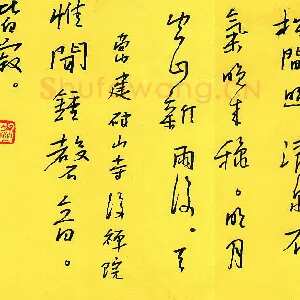 松間照清泉石
氣晚來秋。明月
空山新雨後。天
常建破山寺後禪院
惟聞鐘磬音。
皆寂。
Shufawang.CN